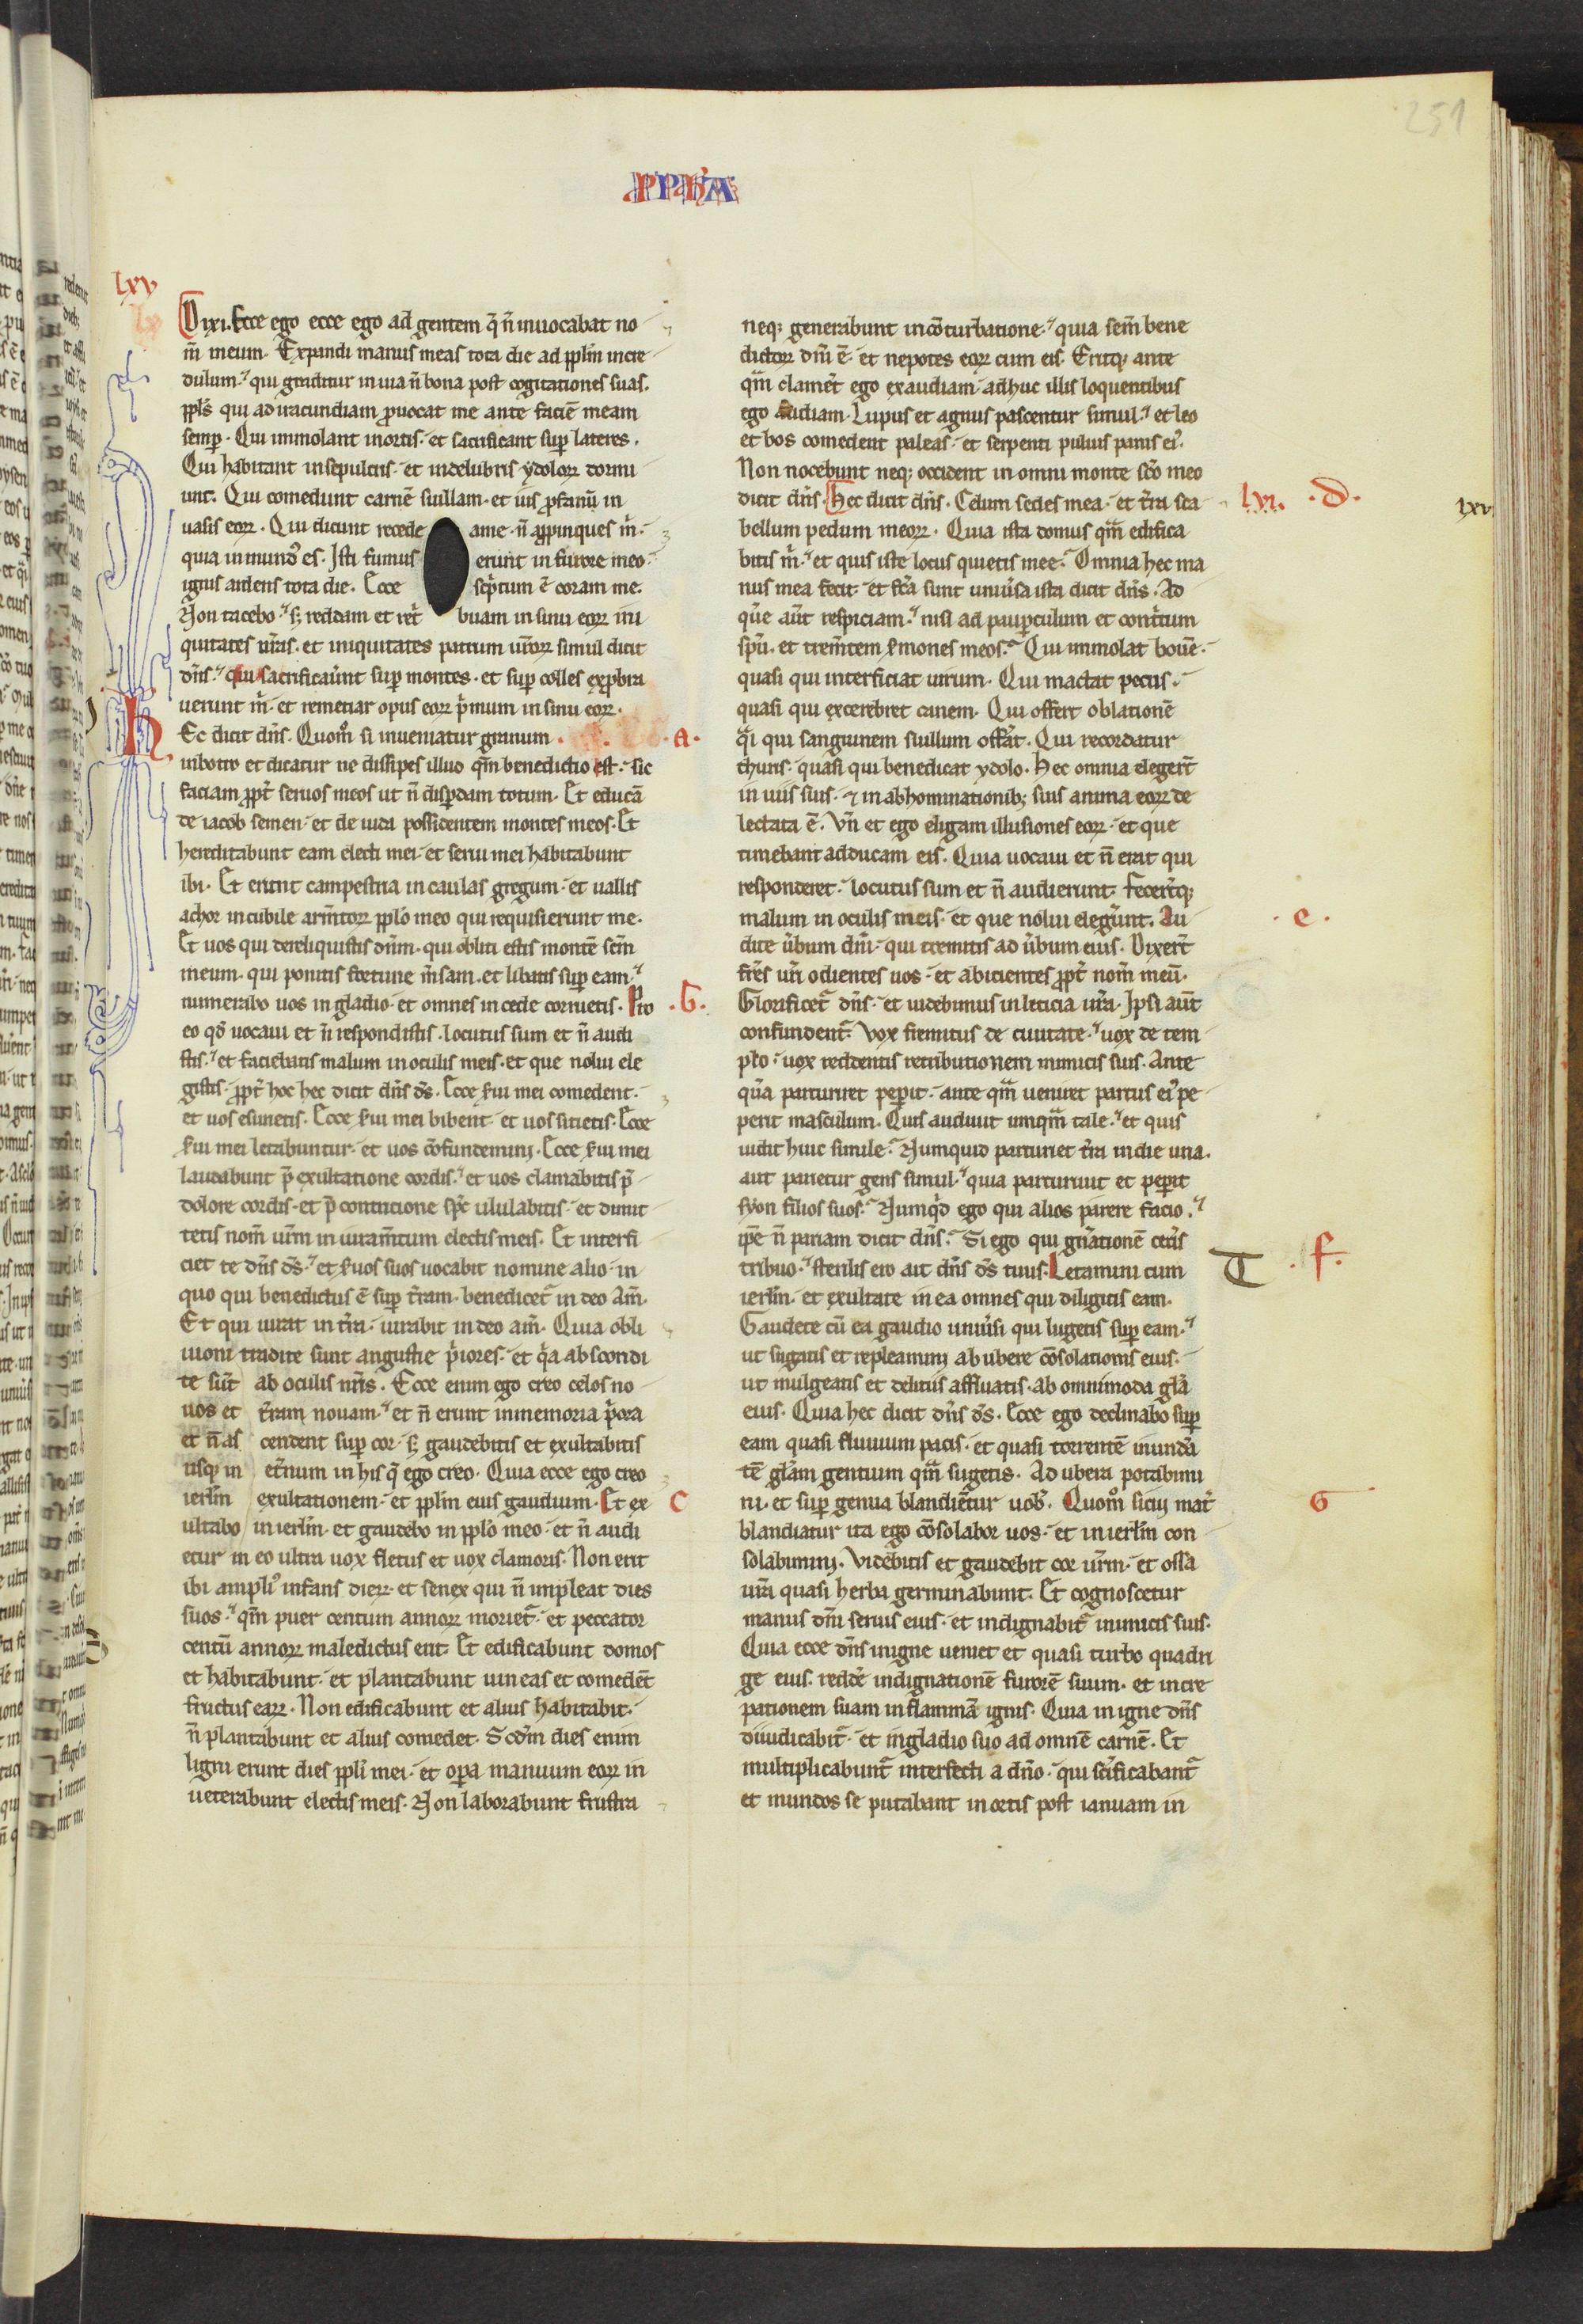 251
PPHA
lxv
Dixi. Ecce ego ecce ego ad gentem q̄ n̄ inuocabat no
m̄ meum. Expandi manus meas tota die ad ppl̄m incre
dulum. qui graditur in uia n̄ bona post cogitationes suas.
ppl̄s qui ad iracundiam ꝓuocat me ante faciē meam
semꝑ. Qui immolant in ortis. et sacrificant suꝑ lateres.
Qui habitant in sepulcris. et in delubris ydoloꝝ dormi
unt. Qui comedunt carnē suillam. et ius ꝓfanū in
uasis eoꝝ. Qui dicunt recede a me. n̄ aꝓpinques m̄.
quia inmund9 es. Isti fumus erunt in furore meo.
ignis ardens tota die. Ecce sc̄ptum ē coram me.
Non tacebo. sꝫ reddam et ret̄buam in sinu eoꝝ ini
quitates ur̄as. et iniquitates patrum ur̄oꝝ simul dicit
dn̄s. qui sacrificaūnt suꝑ montes. et suꝑ colles exꝓbra
uerunt m̄. et remetiar opus eoꝝ p̄mum in sinu eoꝝ.
Hec dicit dn̄s. Quom̄ si inueniatur granum .a.
in botro et dicatur ne dissipes illud qm̄ benedictio est. sic
faciam ꝓpt̄ seruos meos ut n̄ disꝑdam totum. Et educā
de iacob semen. et de iuda possidentem montes meos. Et
hereditabunt eam electi mei. et serui mei habitabunt
ibi. Et erunt campestria in caulas gregum. et uallis
achor in cubile arm̄toꝝ ppl̄o meo qui requisierunt me.
Et uos qui dereliquistis dn̄m. qui obliti estis montē sc̄m
meum. qui ponitis fortune m̄sam. et libatis suꝑ eam.
numerabo uos in gladio. et omnes in cede corruetis. Pro .b.
eo qd̄ uocaui et n̄ respondistis. locutus sum et n̄ audi
stis. et faciebatis malum in oculis meis. et que nolui ele
gistis. ꝓpt̄ hoc hec dicit dn̄s ds̄. Ecce s̄ui mei comedent.
et uos esurietis. Ecce s̄ui mei bibent. et uos sitietis. Ecce
s̄ui mei letabuntur. et uos cōfundemini. Ecce s̄ui mei
laudabunt p̄ exultatione cordis. et uos clamabitis p̄
dolore cordis. et p̄ contritione sp̄c ululabitis. et dimit
tetis nom̄ ur̄m in iuram̄tum electis meis. Et interfi
ciet te dn̄s ds̄. et s̄uos suos uocabit nomine alio. in
quo qui benedictus ē suꝑ t̄ram. benedicet̄ in deo am̄.
Et qui iurat in t̄ra. iurabit in deo am̄. Quia obli
uioni tradite sunt angustie p̄iores. et q̄a abscondi
te sūt ab oculis nr̄is. Ecce enim ego creo celos no
uos et t̄ram nouam. et n̄ erunt in memoria p̄ora
et n̄ as cendent suꝑ cor. sꝫ gaudebitis et exultabitis
usqꝫ in et̄num in his q̄ ego creo. Quia ecce ego creo
ierl̄m exultationem. et ppl̄m eius gaudium. Et ex C
ultabo in ierl̄m. et gaudebo in ppl̄o meo. et n̄ audi
etur in eo ultra uox fletus et uox clamoris. Non erit
ibi ampli9 infans dieꝝ. et senex qui n̄ impleat dies
suos. qm̄ puer centum annoꝝ moriet̄. et peccator
centū annoꝝ maledictus erit. Et edificabunt domos
et habitabunt. et plantabunt uineas et comedēt
fructus eaꝝ. Non edificabunt et alius habitabit.
n̄ plantabunt et alius comedet. Scd̄m dies enim
ligni erunt dies ppl̄i mei. et oꝑa manuum eoꝝ in
ueterabunt electis meis. Non laborabunt frustra
neqꝫ generabunt in cōturbatione. quia sem̄ bene
dictoꝝ dn̄i ē. et nepotes eoꝝ cum eis. Eritqꝫ ante
qm̄ clamēt ego exaudiam. adhuc illis loquentibus
ego audiam. Lupus et agnus pascentur simul. et leo
et bos comedent paleas. et serpenti puluis panis ei9.
Non nocebunt neqꝫ occident in omni monte sc̄o meo
dicit dn̄s. Hec dicit dn̄s. Celum sedes mea. et t̄ra sca lxvi. .d. lxv
bellum pedum meoꝝ. Quia ista domus qm̄ edifica
bitis m̄. et quis iste locus quietis mee. Omnia hec ma
nus mea fecit. et fc̄a sunt uniūsa ista dicit dn̄s. Ad
q̄e aūt respiciam. nisi ad pauꝑculum et cont̄tum
sp̄u. et trem̄tem s̄mones meos. Qui immolat bouē.
quasi qui interficiat uirum. Qui mactat pecus.
quasi qui excerebret canem. Qui offert oblationē
q̄i qui sanguinem suillum offāt. Qui recordatur
thuris. quasi qui benedicat ydolo. Hec omnia elegert̄
in uiis suis. ⁊ in abhominationibꝫ suis anima eoꝝ de
lectata ē. Vn̄ et ego eligam illusiones eoꝝ. et que
timebant adducam eis. Quia uocaui et n̄ erat qui
responderet. locutus sum et n̄ audierunt. fecert̄qꝫ
malum in oculis meis. et que nolui elegūnt. Au .e.
dite ūbum dn̄i. qui tremitis ad ūbum eius. Dixert̄
fr̄es ur̄i odientes uos. et abicientes ꝓpt̄ nom̄ meū.
Glorificet̄ dn̄s. et uidebimus in leticia ur̄a. Ipsi aūt
confundent̄. Vox fremitus de ciuitate. uox de tem
plo. uox reddentis retributionem inimicis suis. Ante
q̄a parturiret peꝑit. ante qm̄ ueniret partus ei9 pe
perit masculum. Quis audiuit umqm̄ tale. et quis
uidit huic simile. Numquid parturiet t̄ra in die una.
aut parietur gens simul. quia parturiuit et peꝑit
syon filios suos. Numq̄d ego qui alios parere facio.
ip̄e n̄ pariam dicit dn̄s. Si ego qui gn̄ationē cet̄is
tribuo. sterilis ero ait dn̄s ds̄ tuus. Letamini cum T .f.
ierl̄m. et exultate in ea omnes qui diligitis eam.
Gaudete cū ea gaudio uniūsi qui lugetis suꝑ eam.
ut sugatis et repleamini ab ubere cōsolationis eius.
ut mulgeatis et delitiis affluatis. ab omnimoda gl̄a
eius. Quia hec dicit dn̄s ds̄. Ecce ego declinabo suꝑ
eam quasi fluuium pacis. et quasi torrentē inundā
tē gl̄am gentium qm̄ sugetis. Ad ubera potabimi
ni. et suꝑ genua blandiētur uob9. Quom̄ sicuj mat̄ G
blandiatur ita ego cōsolabor uos. et in ierl̄m con
solabimini. Videbitis et gaudebit cor ur̄m. et ossa
ur̄a quasi herba germinabunt. Et cognoscetur
manus dn̄i seruis eius. et indignabit̄ inimicis suis.
Quia ecce dn̄s in igne ueniet et quasi turbo quadri
ge eius. reddē indignationē furorē suum. et incre
pationem suam in flammā ignis. Quia in igne dn̄s
diiudicabit̄. et in gladio suo ad omnē carnē. Et
multiplicabunt̄ interfecti a dn̄o. qui sc̄ificabant̄
et mundos se putabant in ortis post ianuam in